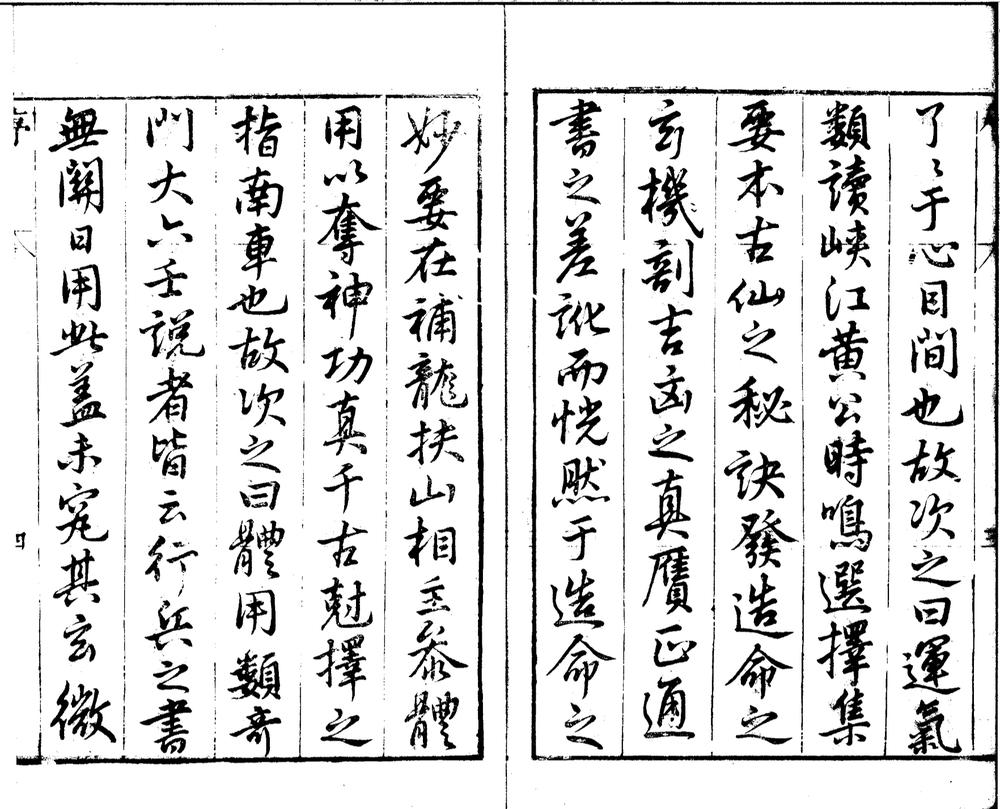 了〻于心目間也故次之曰運氣
類讀峽江黄公時鳴選擇集
要本古仙之秘訣發造命之
玄機剖吉凶之真贋正通
書之差訛而恍然于造命之
妙要在補龍扶山相主叅體
用以奪神功真千古尅擇之
指南車也故次之曰體用類竒
門大六壬説者皆云行兵之書
無關日用此盖未究其玄微
序
四